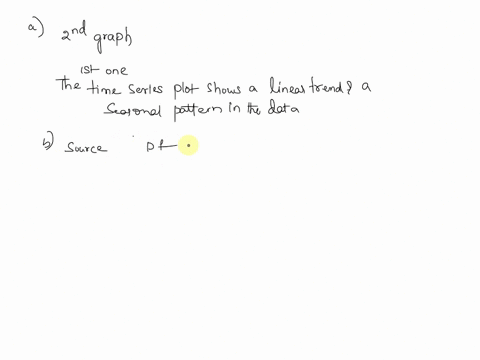 a) 2nd graph
1st one
The time series plot shows a linear trend & a
seasonal pattern in the data
b) Source Df